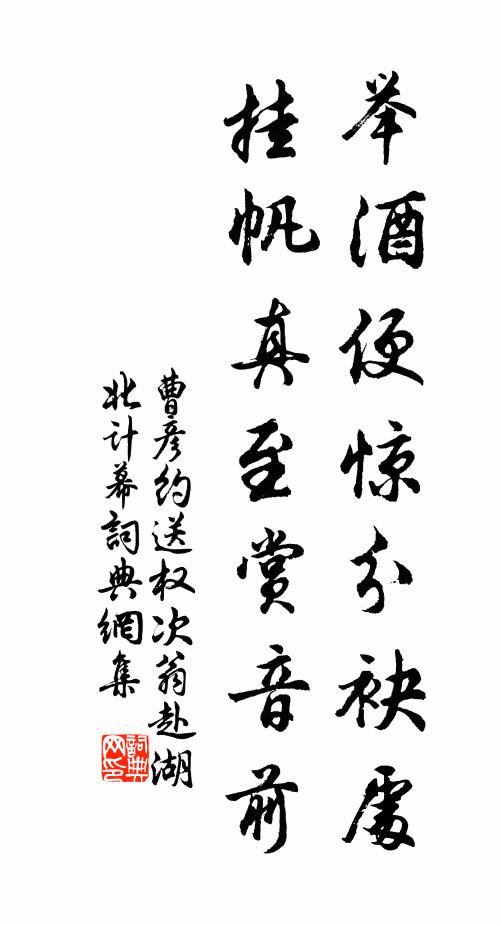 举酒便惊分袂處
挂帆真至赏音前
曹彦约送权次翁赴湖
北计幕詞典網集
詞典
网印